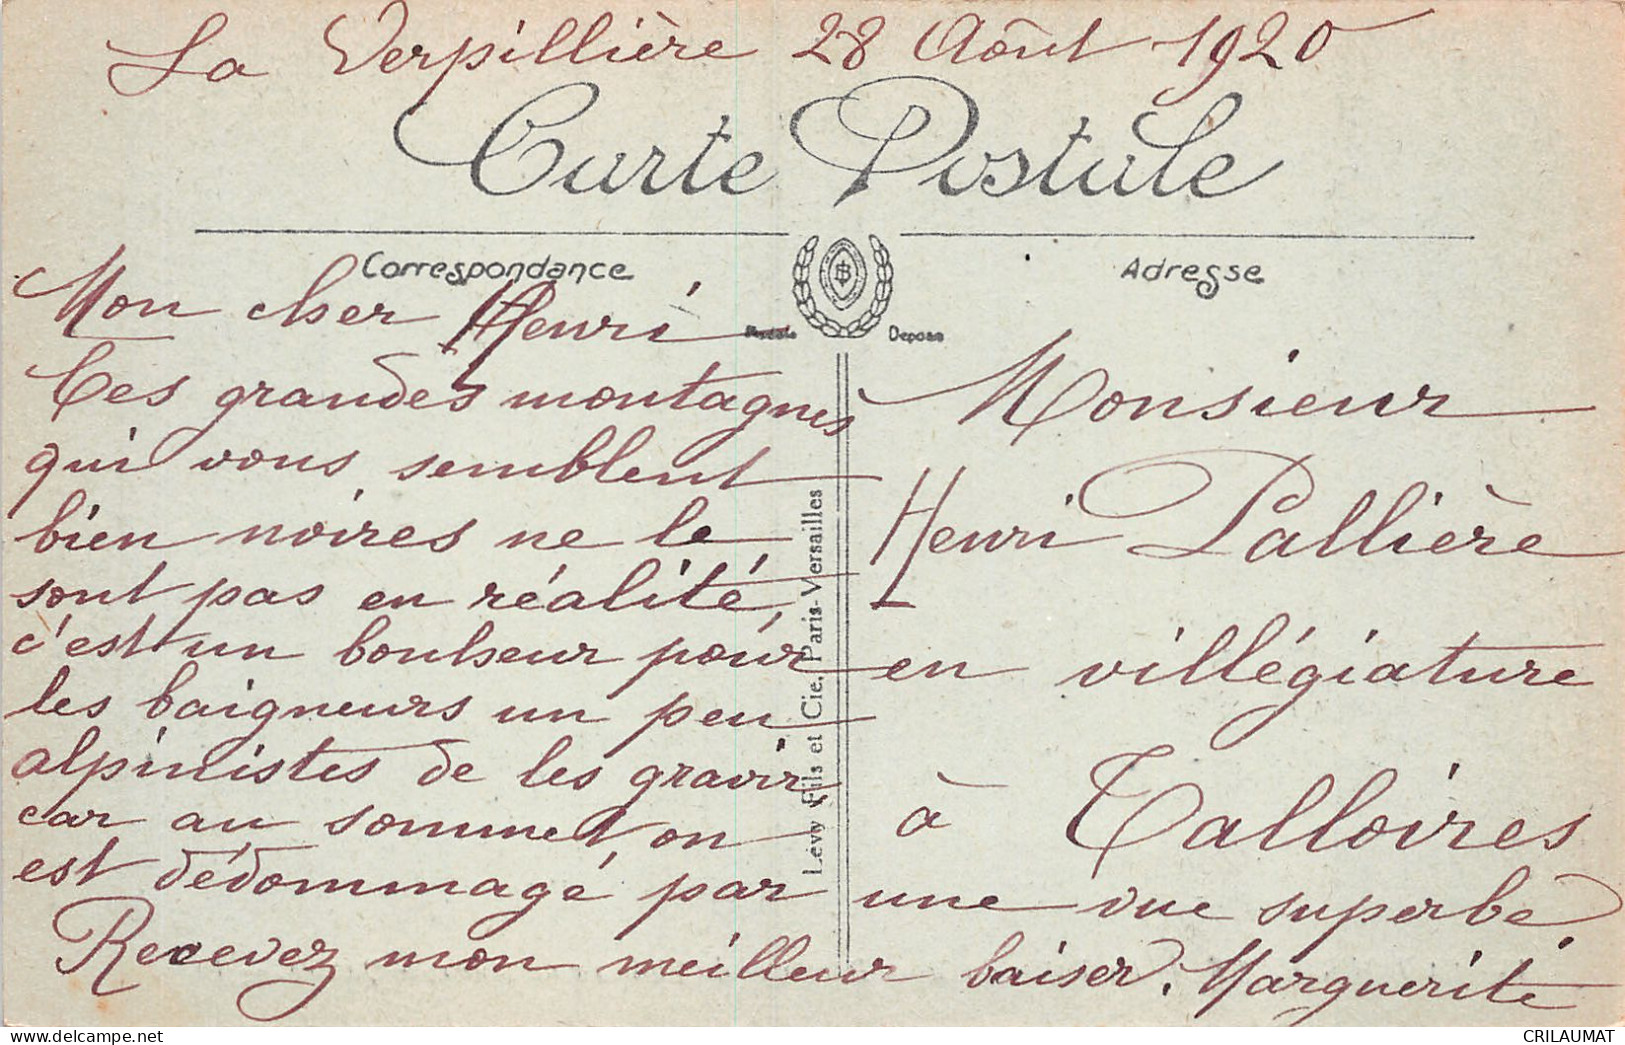 La Verpillière 28 Août 1920
Carte Postale
Correspondance
Adresse
Deposé
Mon cher Henri
Ces grandes montagnes
qui vous semblent
bien noires ne le
sont pas en réalité,
c'est un bonheur pour
les baigneurs un peu
alpinistes de les gravir,
car au sommet, on
est dédommagé par une vue superbe.
Recevez mon meilleur baiser. Marguerite
Monsieur
Henri Pallière
en villégiature
à Talloires
Lévy Fils et Cie, Paris-Versailles
CRILAUMAT